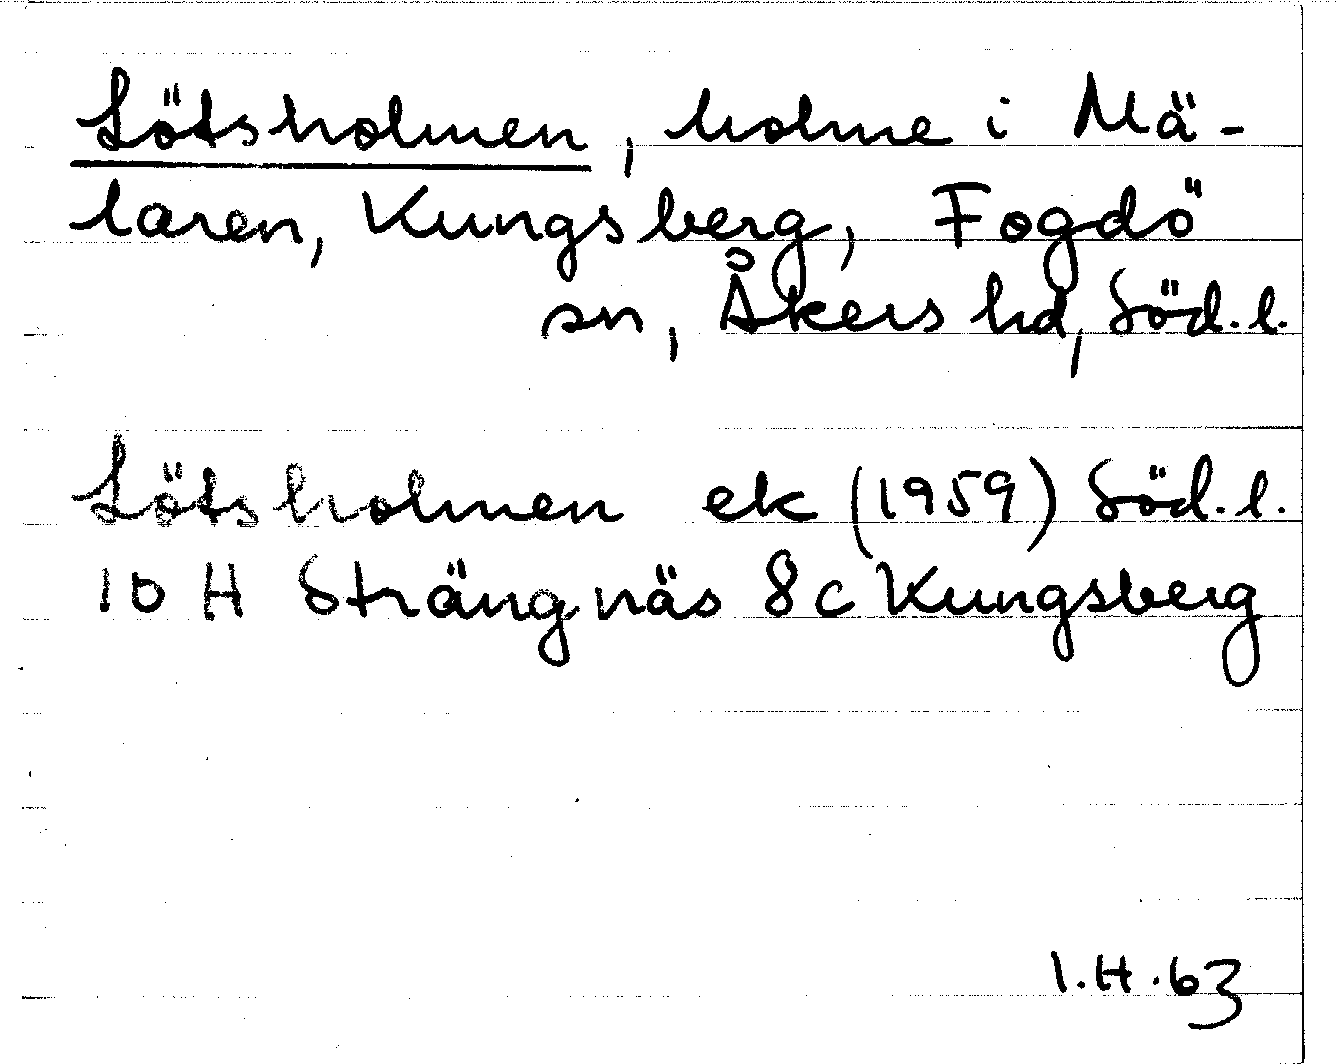 Lötsholmen, holme i Mä-
laren, Kungsberg, Fogdö
sn, Åkers hd, Söd.l.
Lötsholmen ek (1959) Söd.l.
10 H Strängnäs 8 c Kungsberg
I.H.63